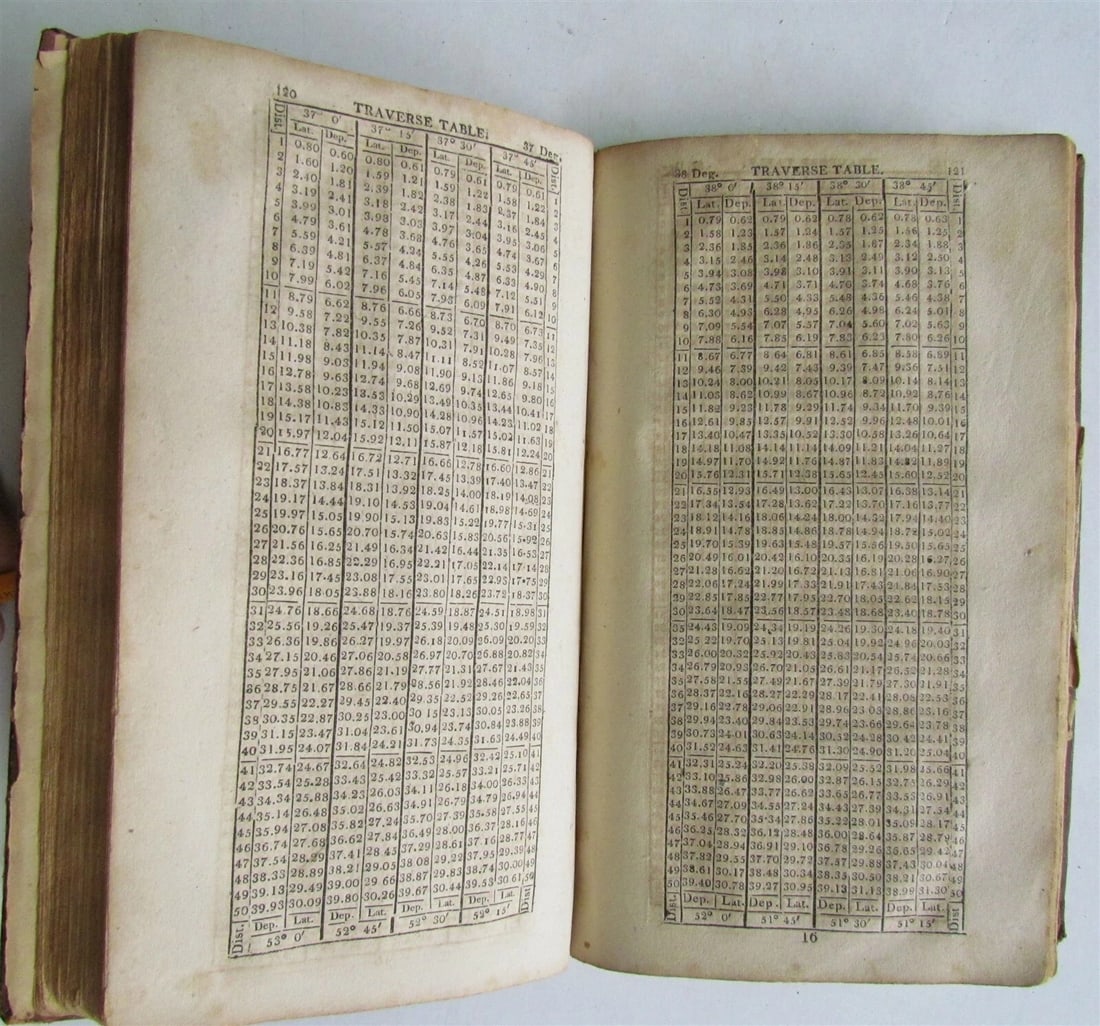 120
TRAVERSE TABLE.
37 Deg.
Dist. 37° 0' 37° 15' 37° 30' 37° 45' Dist.
Lat. Dep. Lat. Dep. Lat. Dep. Lat. Dep.
1 0.80 0.60 0.80 0.61 0.79 0.61 0.79 0.61 1
2 1.60 1.20 1.59 1.21 1.59 1.22 1.58 1.22 2
3 2.40 1.81 2.39 1.82 2.38 1.83 2.37 1.84 3
4 3.19 2.41 3.18 2.42 3.17 2.44 3.16 2.45 4
5 3.99 3.01 3.98 3.03 3.97 3.04 3.95 3.06 5
6 4.79 3.61 4.78 3.63 4.76 3.65 4.74 3.67 6
7 5.59 4.21 5.57 4.24 5.55 4.26 5.53 4.29 7
8 6.39 4.81 6.37 4.84 6.35 4.87 6.33 4.90 8
9 7.19 5.42 7.16 5.45 7.14 5.48 7.12 5.51 9
10 7.99 6.02 7.96 6.05 7.93 6.09 7.91 6.12 10
11 8.79 6.62 8.76 6.66 8.73 6.70 8.70 6.73 11
12 9.58 7.22 9.55 7.26 9.52 7.31 9.49 7.35 12
13 10.38 7.82 10.35 7.87 10.31 7.91 10.28 7.96 13
14 11.18 8.43 11.14 8.47 11.11 8.52 11.07 8.57 14
15 11.98 9.03 11.94 9.08 11.90 9.13 11.86 9.18 15
16 12.78 9.63 12.74 9.68 12.69 9.74 12.65 9.80 16
17 13.58 10.23 13.53 10.29 13.49 10.35 13.44 10.41 17
18 14.38 10.83 14.33 10.90 14.28 10.96 14.23 11.02 18
19 15.17 11.43 15.12 11.50 15.07 11.57 15.02 11.63 19
20 15.97 12.04 15.92 12.11 15.87 12.18 15.81 12.24 20
21 16.77 12.64 16.72 12.71 16.66 12.78 16.60 12.86 21
22 17.57 13.24 17.51 13.32 17.45 13.39 17.40 13.47 22
23 18.37 13.84 18.31 13.92 18.25 14.00 18.19 14.08 23
24 19.17 14.44 19.10 14.53 19.04 14.61 18.98 14.69 24
25 19.97 15.05 19.90 15.13 19.83 15.22 19.77 15.31 25
26 20.76 15.65 20.70 15.74 20.63 15.83 20.56 15.92 26
27 21.56 16.25 21.49 16.34 21.42 16.44 21.35 16.53 27
28 22.36 16.85 22.29 16.95 22.21 17.05 22.14 17.14 28
29 23.16 17.45 23.08 17.55 23.01 17.65 22.93 17.75 29
30 23.96 18.05 23.88 18.16 23.80 18.26 23.72 18.37 30
31 24.76 18.66 24.68 18.76 24.59 18.87 24.51 18.98 31
32 25.56 19.26 25.47 19.37 25.39 19.48 25.30 19.59 32
33 26.36 19.86 26.27 19.97 26.18 20.09 26.09 20.20 33
34 27.15 20.46 27.06 20.58 26.97 20.70 26.88 20.82 34
35 27.95 21.06 27.86 21.19 27.77 21.31 27.67 21.43 35
36 28.75 21.67 28.66 21.79 28.56 21.92 28.46 22.04 36
37 29.55 22.27 29.45 22.40 29.35 22.52 29.26 22.65 37
38 30.35 22.87 30.25 23.00 30 15 23.13 30.05 23.26 38
39 31.15 23.47 31.04 23.61 30.94 23.74 30.84 23.88 39
40 31.95 24.07 31.84 24.21 31.73 24.35 31.63 24.49 40
41 32.74 24.67 32.64 24.82 32.53 24.96 32.42 25.10 41
42 33.54 25.28 33.43 25.42 33.32 25.57 33.21 25.71 42
43 34.34 25.88 34.23 26.03 34.11 26.18 34.00 26.33 43
44 35.14 26.48 35.02 26.63 34.91 26.79 34.79 26.94 44
45 35.94 27.08 35.82 27.24 35.70 27.39 35.58 27.55 45
46 36.74 27.68 36.62 27.84 36.49 28.00 36.37 28.16 46
47 37.54 28.29 37.41 28 45 37.29 28.61 37.16 28.77 47
48 38.33 28.89 38.21 29.05 38.08 29.22 37.95 29.39 48
49 39.13 29.49 39.00 29 66 38.87 29.83 38.74 30.00 49
50 39.93 30.09 39.80 30.26 39.67 30.44 39.53 30.61 50
Dist. Dep. Lat. Dep. Lat. Dep. Lat. Dep. Lat. Dist
53° 0' 52° 45' 52° 30' 52° 15'
38 Deg.
TRAVERSE TABLE.
121
Dist. 38° 0' 38° 15' 38° 30' 38° 45' Dist.
Lat. Dep. Lat. Dep. Lat. Dep. Lat. Dep.
1 0.79 0.62 0.79 0.62 0.78 0.62 0.78 0.63 1
2 1.58 1.23 1.57 1.24 1.57 1.25 1.56 1.25 2
3 2.36 1.85 2.36 1.86 2.35 1.87 2.34 1.88 3
4 3.15 2.46 3.14 2.48 3.13 2.49 3.12 2.50 4
5 3.94 3.08 3.93 3.10 3.91 3.11 3.90 3.13 5
6 4.73 3.69 4.71 3.71 4.70 3.74 4.68 3.76 6
7 5.52 4.31 5.50 4.33 5.48 4.36 5.46 4.38 7
8 6.30 4.93 6.28 4.95 6.26 4.98 6.24 5.01 8
9 7.09 5.54 7.07 5.57 7.04 5.60 7.02 5.63 9
10 7.88 6.16 7.85 6.19 7.83 6.23 7.80 6.26 10
11 8.67 6.77 8 64 6.81 8.61 6.85 8.58 6.89 11
12 9.46 7.39 9.42 7.43 9.39 7.47 9.36 7.51 12
13 10.24 8.00 10.21 8.05 10.17 8.09 10.14 8.14 13
14 11.03 8.62 10.99 8.67 10.96 8.72 10.92 8.76 14
15 11.82 9.23 11.78 9.29 11.74 9.34 11.70 9.39 15
16 12.61 9.85 12.57 9.91 12.52 9.96 12.48 10.01 16
17 13.40 10.47 13.35 10.52 13.30 10.58 13.26 10.64 17
18 14.18 11.08 14.14 11.14 14.09 11.21 14.04 11.27 18
19 14.97 11.70 14.92 11.76 14.87 11.83 14.82 11.89 19
20 15.76 12.31 15.71 12.38 15.65 12.45 15.60 12.52 20
21 16.55 12.93 16.49 13.00 16.43 13.07 16.38 13.14 21
22 17.34 13.54 17.28 13.62 17.22 13.70 17.16 13.77 22
23 18.12 14.16 18.06 14.24 18.00 14.32 17.94 14.40 23
24 18.91 14.78 18.85 14.86 18.78 14.94 18.72 15.02 24
25 19.70 15.39 19.63 15.48 19.57 15.56 19.50 15.65 25
26 20.49 16.01 20.42 16.10 20.35 16.19 20.28 16.27 26
27 21.28 16.62 21.20 16.72 21.13 16.81 21.06 16.90 27
28 22.06 17.24 21.99 17.33 21.91 17.43 21.84 17.53 28
29 22.85 17.85 22.77 17.95 22.70 18.05 22.62 18.15 29
30 23.64 18.47 23.56 18.57 23.48 18.68 23.40 18.78 30
35 24.43 19.09 24.34 19.19 24.26 19.30 24.18 19.40 31
32 25.22 19.70 25.13 19.81 25.04 19.92 24.96 20.03 32
33 26.00 20.32 25.92 20.43 25.83 20.54 25.74 20.66 33
34 26.79 20.93 26.70 21.05 26.61 21.17 26.52 21.28 34
35 27.58 21.55 27.49 21.67 27.39 21.79 27.30 21.91 35
36 28.37 22.16 28.27 22.29 28.17 22.41 28.08 22.53 36
37 29.16 22.78 29.06 22.91 28.96 23.03 28.86 23.16 37
38 29.94 23.40 29.84 23.53 29.74 23.66 29.64 23.78 38
39 30.73 24.01 30.63 24.14 30.52 24.28 30.42 24.41 39
40 31.52 24.63 31.41 24.76 31.30 24.90 31.20 25.04 40
41 32.31 25.24 32.20 25.38 32.09 25.52 31.98 25.66 41
42 33.10 25.86 32.98 26.00 32.87 26.15 32.75 26.29 42
43 33.88 26.47 33.77 26.62 33.65 26.77 33.53 26.91 43
44 34.67 27.09 34.55 27.24 34.43 27.39 34.31 27.54 44
45 35.46 27.70 35.34 27.86 35.22 28.01 35.09 28.17 45
46 36.25 28.32 36.12 28.48 36.00 28.64 35.87 28.79 46
47 37.04 28.94 36.91 29.10 36.78 29.26 36.65 29.42 47
48 37.82 29.55 37.70 29.72 37.57 29.88 37.43 30.04 48
49 38.61 30.17 38.48 30.34 38.35 30.50 38.21 30.67 49
50 39.40 30.78 39.27 30.95 39.13 31.13 38.99 31.30 50
Dist. Dep. Lat. Dep. Lat. Dep. Lat. Dep. Lat. Dist
52° 0' 51° 45' 51° 30' 51° 15'
16